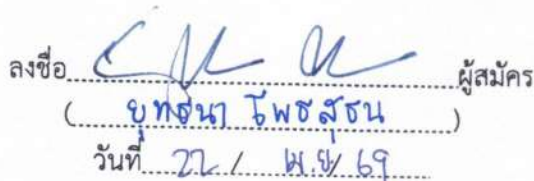 ลงชื่อ ผู้สมัคร
( ยุทธนา โพธสุธน )
วันที่ 22 / เม.ย / 69